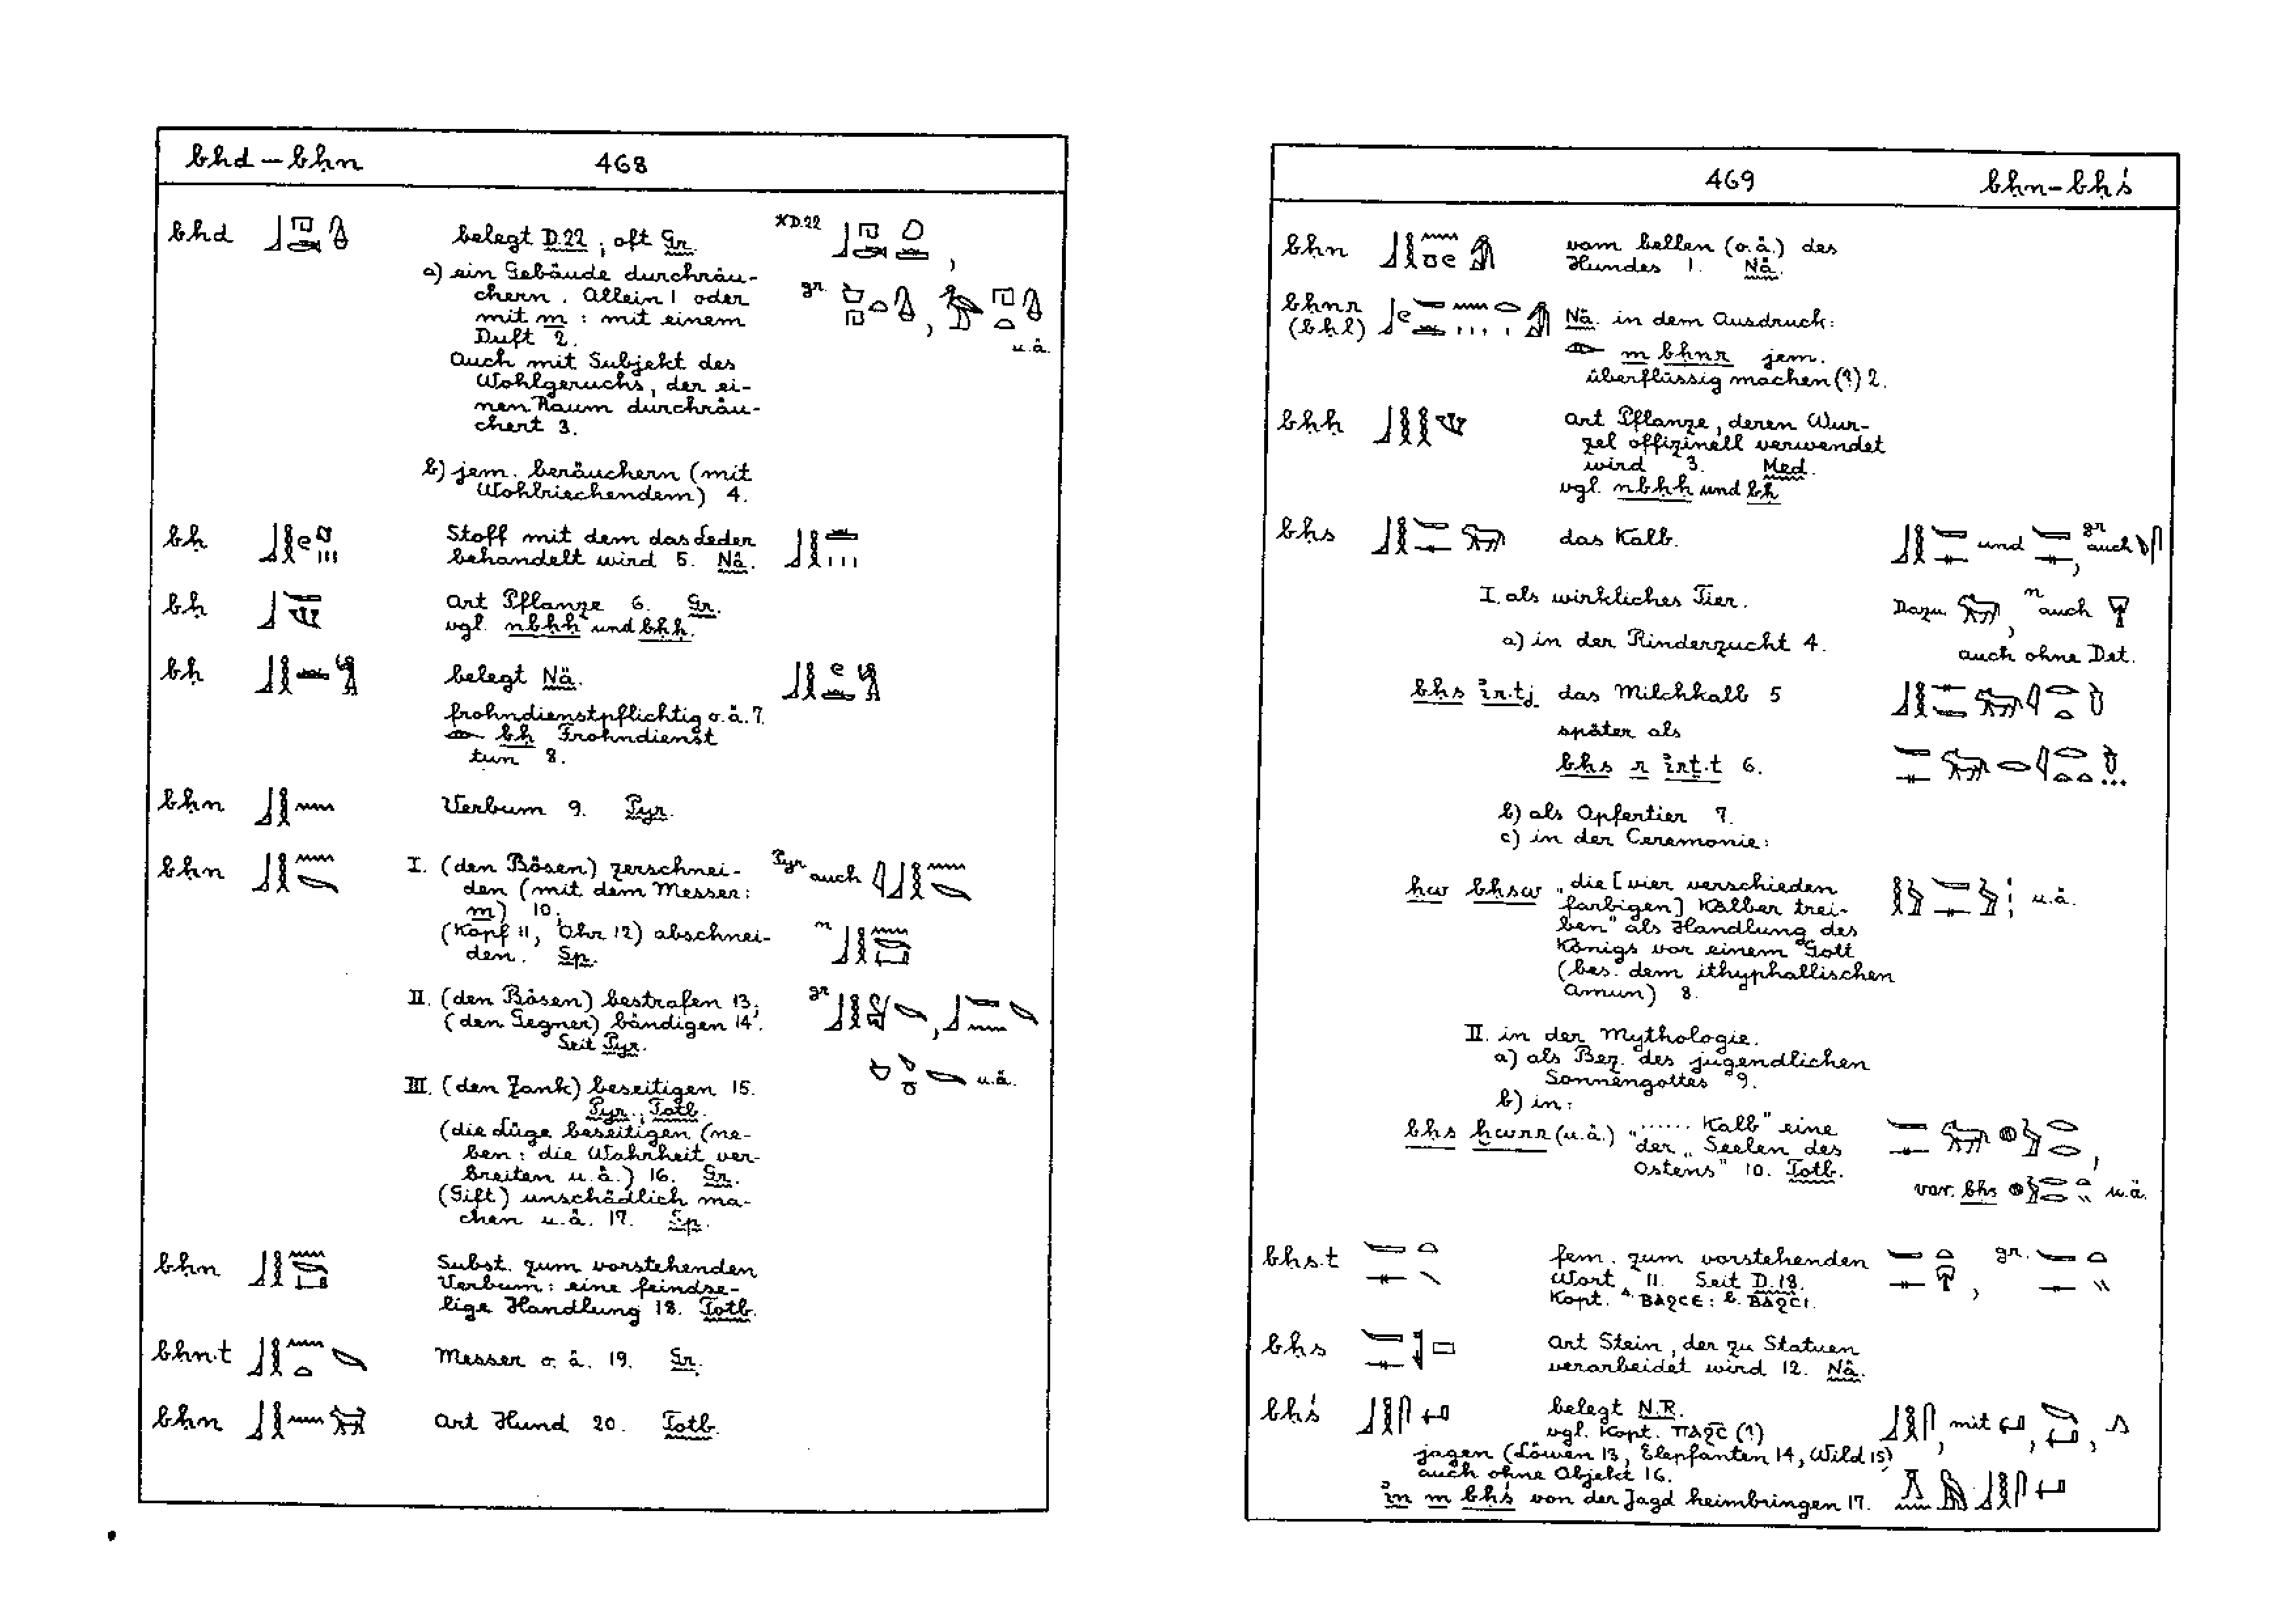 bhd – bḥn 468
bhd belegt D.22, oft Gr. XD.22
a) ein Gebäude durchräu-
chern. Allein 1 oder gr.
mit m : mit einem
Duft 2. u.ä.
Auch mit Subjekt des
Wohlgeruchs, der ei-
nen Raum durchräu-
chert 3.
b) jem. beräuchern (mit
Wohlriechendem) 4.
bḥ Stoff mit dem das Leder
behandelt wird 5. Nä.
bḥ Art Pflanze 6. Gr.
vgl. nbḥḥ und bḥḥ.
bḥ belegt Nä.
frohndienstpflichtig o.ä. 7.
bḥ Frohndienst
tun 8.
bḥn Verbum 9. Pyr.
bḥn I. (den Bösen) zerschnei- Pyr. auch
den (mit dem Messer:
m) 10.
(Kopf 11, Ohr 12) abschnei- n
den. Sp.
II. (den Bösen) bestrafen 13; gr
(den Gegner) bändigen 14.
Seit Pyr.
III. (den Zank) beseitigen 15. u.ä.
Pyr., Totb.
(die Lüge beseitigen (ne-
ben : die Wahrheit ver-
breiten u.ä.) 16. Gr.
(Gift) unschädlich ma-
chen u.ä. 17. Sp.
bḥn Subst. zum vorstehenden
Verbum : eine feindse-
lige Handlung 18. Totb.
bḥn.t Messer o.ä. 19. Gr.
bḥn Art Hund 20. Totb.
469 bḥn – bḥś
bḥn vom bellen (o.ä.) des
Hundes 1. Nä.
bḥnr
(bḥl) Nä. in dem Ausdruck:
m bḥnr jem.
überflüssig machen (?) 2.
bḥḥ Art Pflanze, deren Wur-
zel offizinell verwendet
wird 3. Med.
vgl. nbḥḥ und bḥ
bḥs das Kalb. und , gr auch
I. als wirkliches Tier. Dazu , n auch
a) in der Rinderzucht 4. auch ohne Det.
bḥs ỉr.tj das Milchkalb 5
später als
bḥs r ỉrt.t 6.
b) als Opfertier 7.
c) in der Ceremonie:
ḥw bḥsw „die [vier verschieden u.ä.
farbigen] Kälber trei-
ben" als Handlung des
Königs vor einem Gott
(bes. dem ithyphallischen
Amun) 8.
II. in der Mythologie.
a) als Bez. des jugendlichen
Sonnengottes 9.
b) in:
bḥs ḫwrr (u.ä.) „...... Kalb" eine
der „Seelen des
Ostens" 10. Totb.
var. bḥs u.ä.
bḥs.t fem. zum vorstehenden gr.
Wort 11. Seit D.18.
Kopt. ᴬ· ⲃⲁϩⲥⲉ : ᵇ· ⲃⲁϩⲥⲓ.
bḥs Art Stein, der zu Statuen
verarbeidet wird 12. Nä.
bḥś belegt N.R. mit
vgl. Kopt. ⲡⲁϩⲥ̄ (?)
jagen (Löwen 13, Elepfanten 14, Wild 15)
auch ohne Objekt 16.
ỉn m bḥś von der Jagd heimbringen 17.